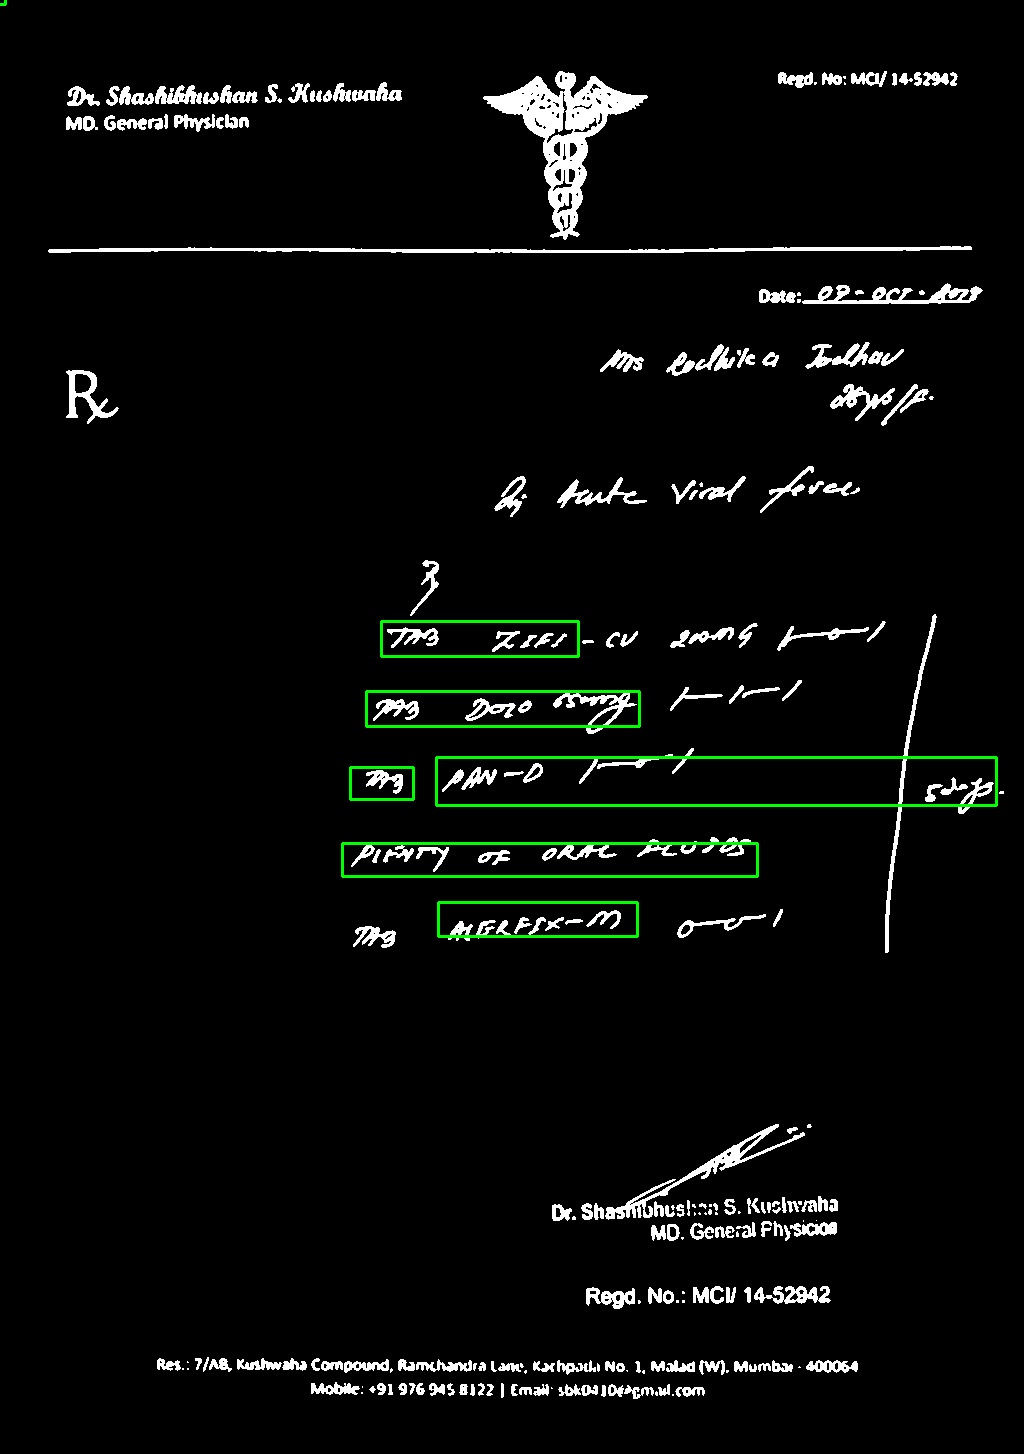 Dr. Shashibhushan S. Kushwaha
MD. General Physician
Regd. No: MCI/ 14-52942
Date: 07-OCT-
Rx
Ms Radhika Jadhav
28 yrs/F.
Acute Viral fever
TAB ZIFI-CV 200MG 1-0-1
TAB DOLO 650mg 1-1-1
TAB PAN-D 1-0-1
5 days.
PLENTY OF ORAL FLUIDS
TAB ALERFIX-M 0-0-1
Dr. Shashibhushan S. Kushwaha
MD. General Physician
Regd. No.: MCI/ 14-52942
Res.: 7/AB, Kushwaha Compound, Ramchandra Lane, Kachpada No. 1, Malad (W), Mumbai - 400064
Mobile: +91 976 945 8122 | Email: sbk0410@gmail.com